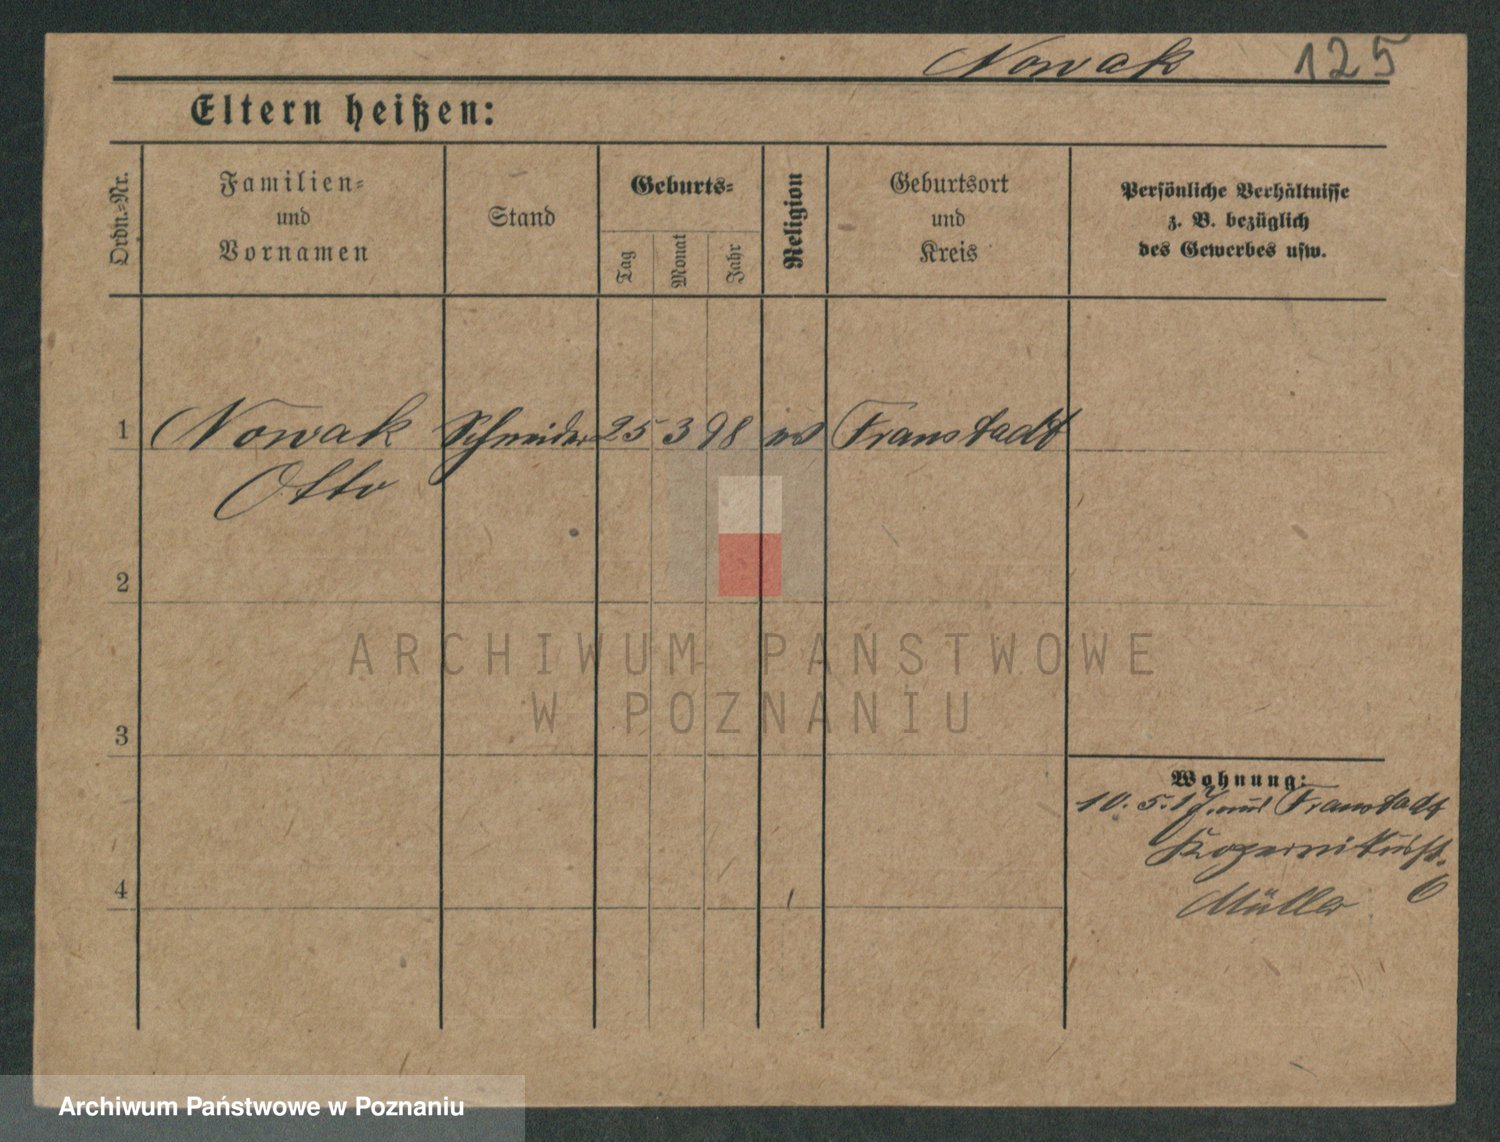 Nowak 125
Eltern heißen:
Ordn.-Nr.
Familien-
und
Vornamen
Stand
Geburts-
Tag
Monat
Jahr
Religion
Geburtsort
und
Kreis
Persönliche Verhältnisse
z. B. bezüglich
des Gewerbes usw.
1 Nowak Schneider 25 3 98 Fraustadt
Otto
2
3
4
Wohnung:
10. 5. 17 Fraustadt
6
Müller
ARCHIWUM PAŃSTWOWE
W POZNANIU
Archiwum Państwowe w Poznaniu